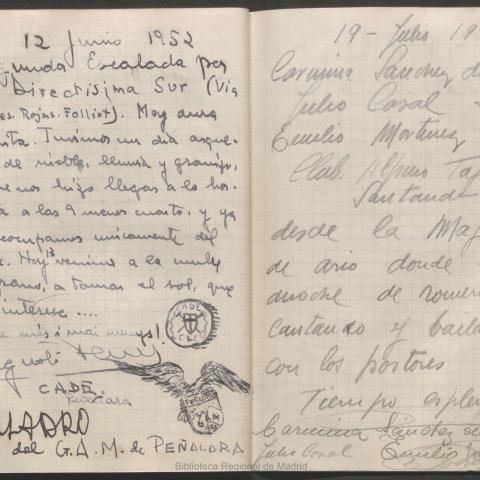 12 Junio 1952
unda Escalada por
Directisima Sur (Via
es. Rojas. Folliot). Muy dura
ita. Tuvimos un dia asque-
de niebla, lluvia y granizo,
nos hizo llegar a la ho.
a a las 9 menos cuarto, y ya
ocupamos unicamente del
Hoy venimos a la
a tomar el sol, que
interesa ....
més i mai menys!
CADE
CADE
PEÑALARA
GAM
del G.A.M. de PEÑALARA
19 - Julio 19
Carmina Sánchez d
Julio Casal
Emilio Martinez
Club Alpino Taj
Santander
desde la Maj
de ario donde
anoche de romer
cantando y baila
con los pastores
Tiempo esplen
Carmina Sánchez de
Julio Casal Emilio
Biblioteca Regional de Madrid